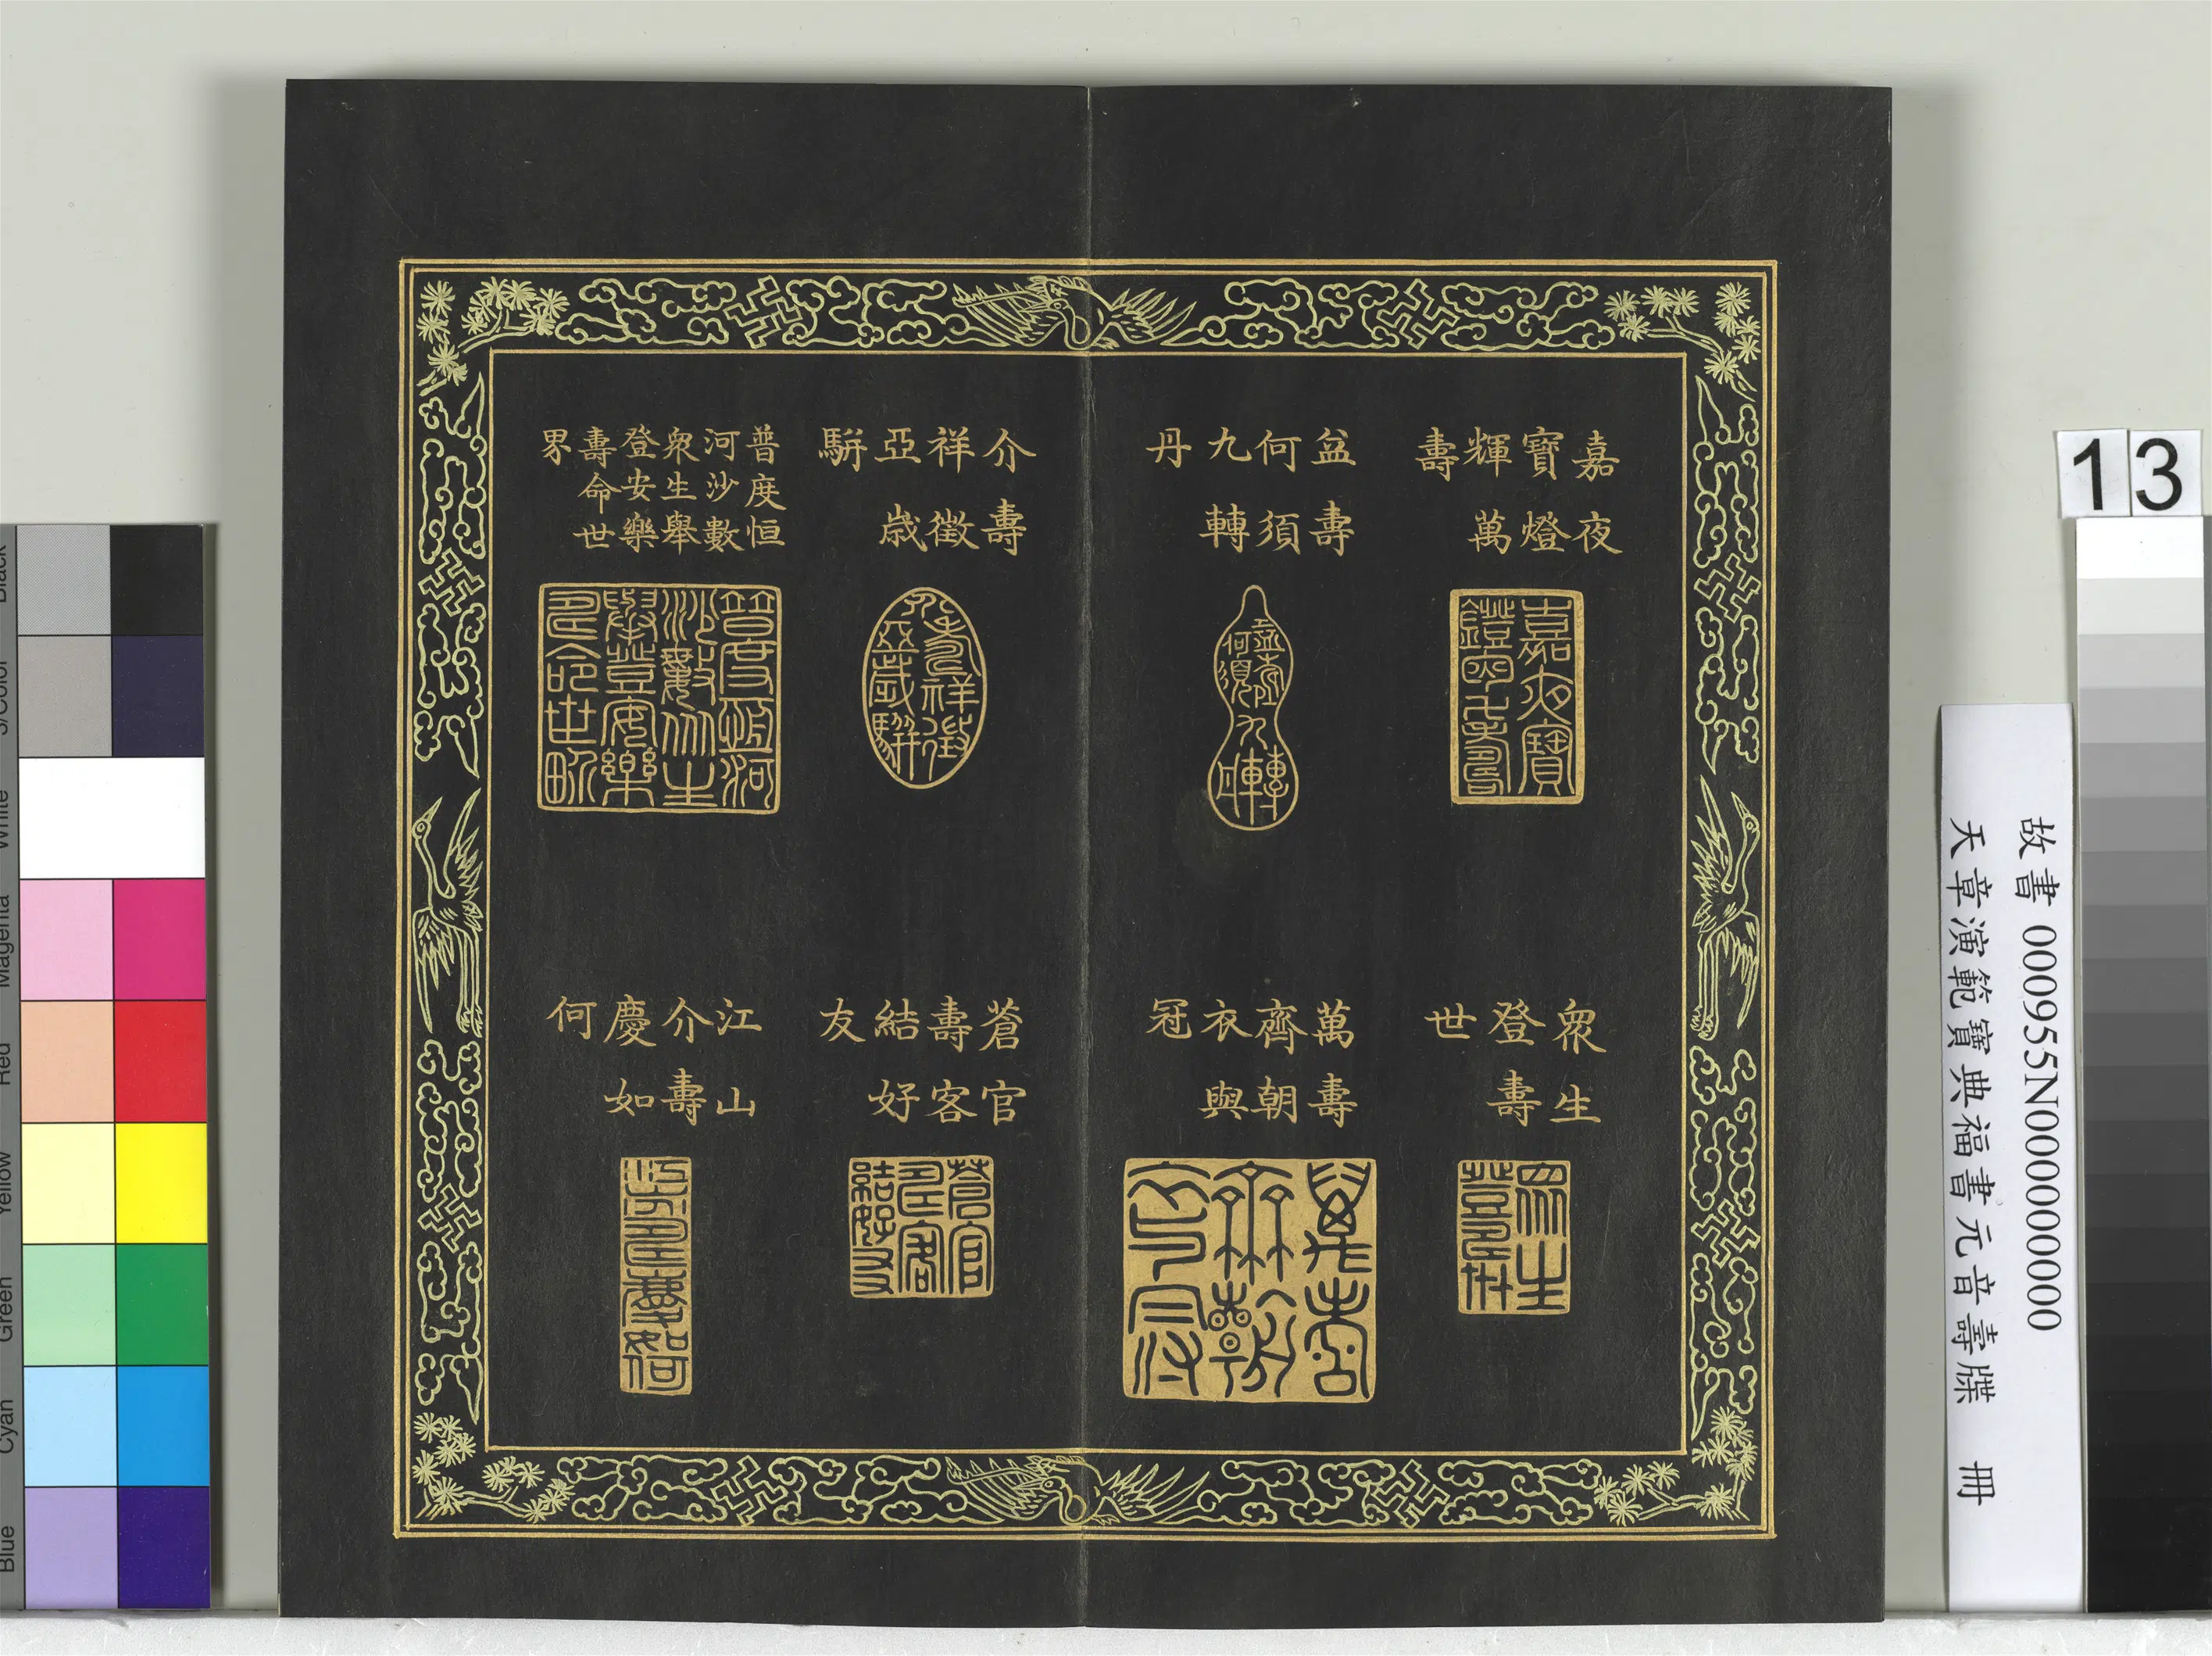 嘉夜
寶燈
輝萬
壽
盆壽
何須
九轉
丹
介壽
祥徵
亞歲
駢
普度恒
河沙數
衆生舉
登安樂
壽命世
界
衆生
登壽
世
萬壽
齊朝
衣與
冠
蒼官
壽客
結好
友
江山
介壽
慶如
何
13
故書 000955N000000000
天章演範寶典福書元音壽牒 冊
Black
3/Color
White
Magenta
Red
Yellow
Green
Cyan
Blue